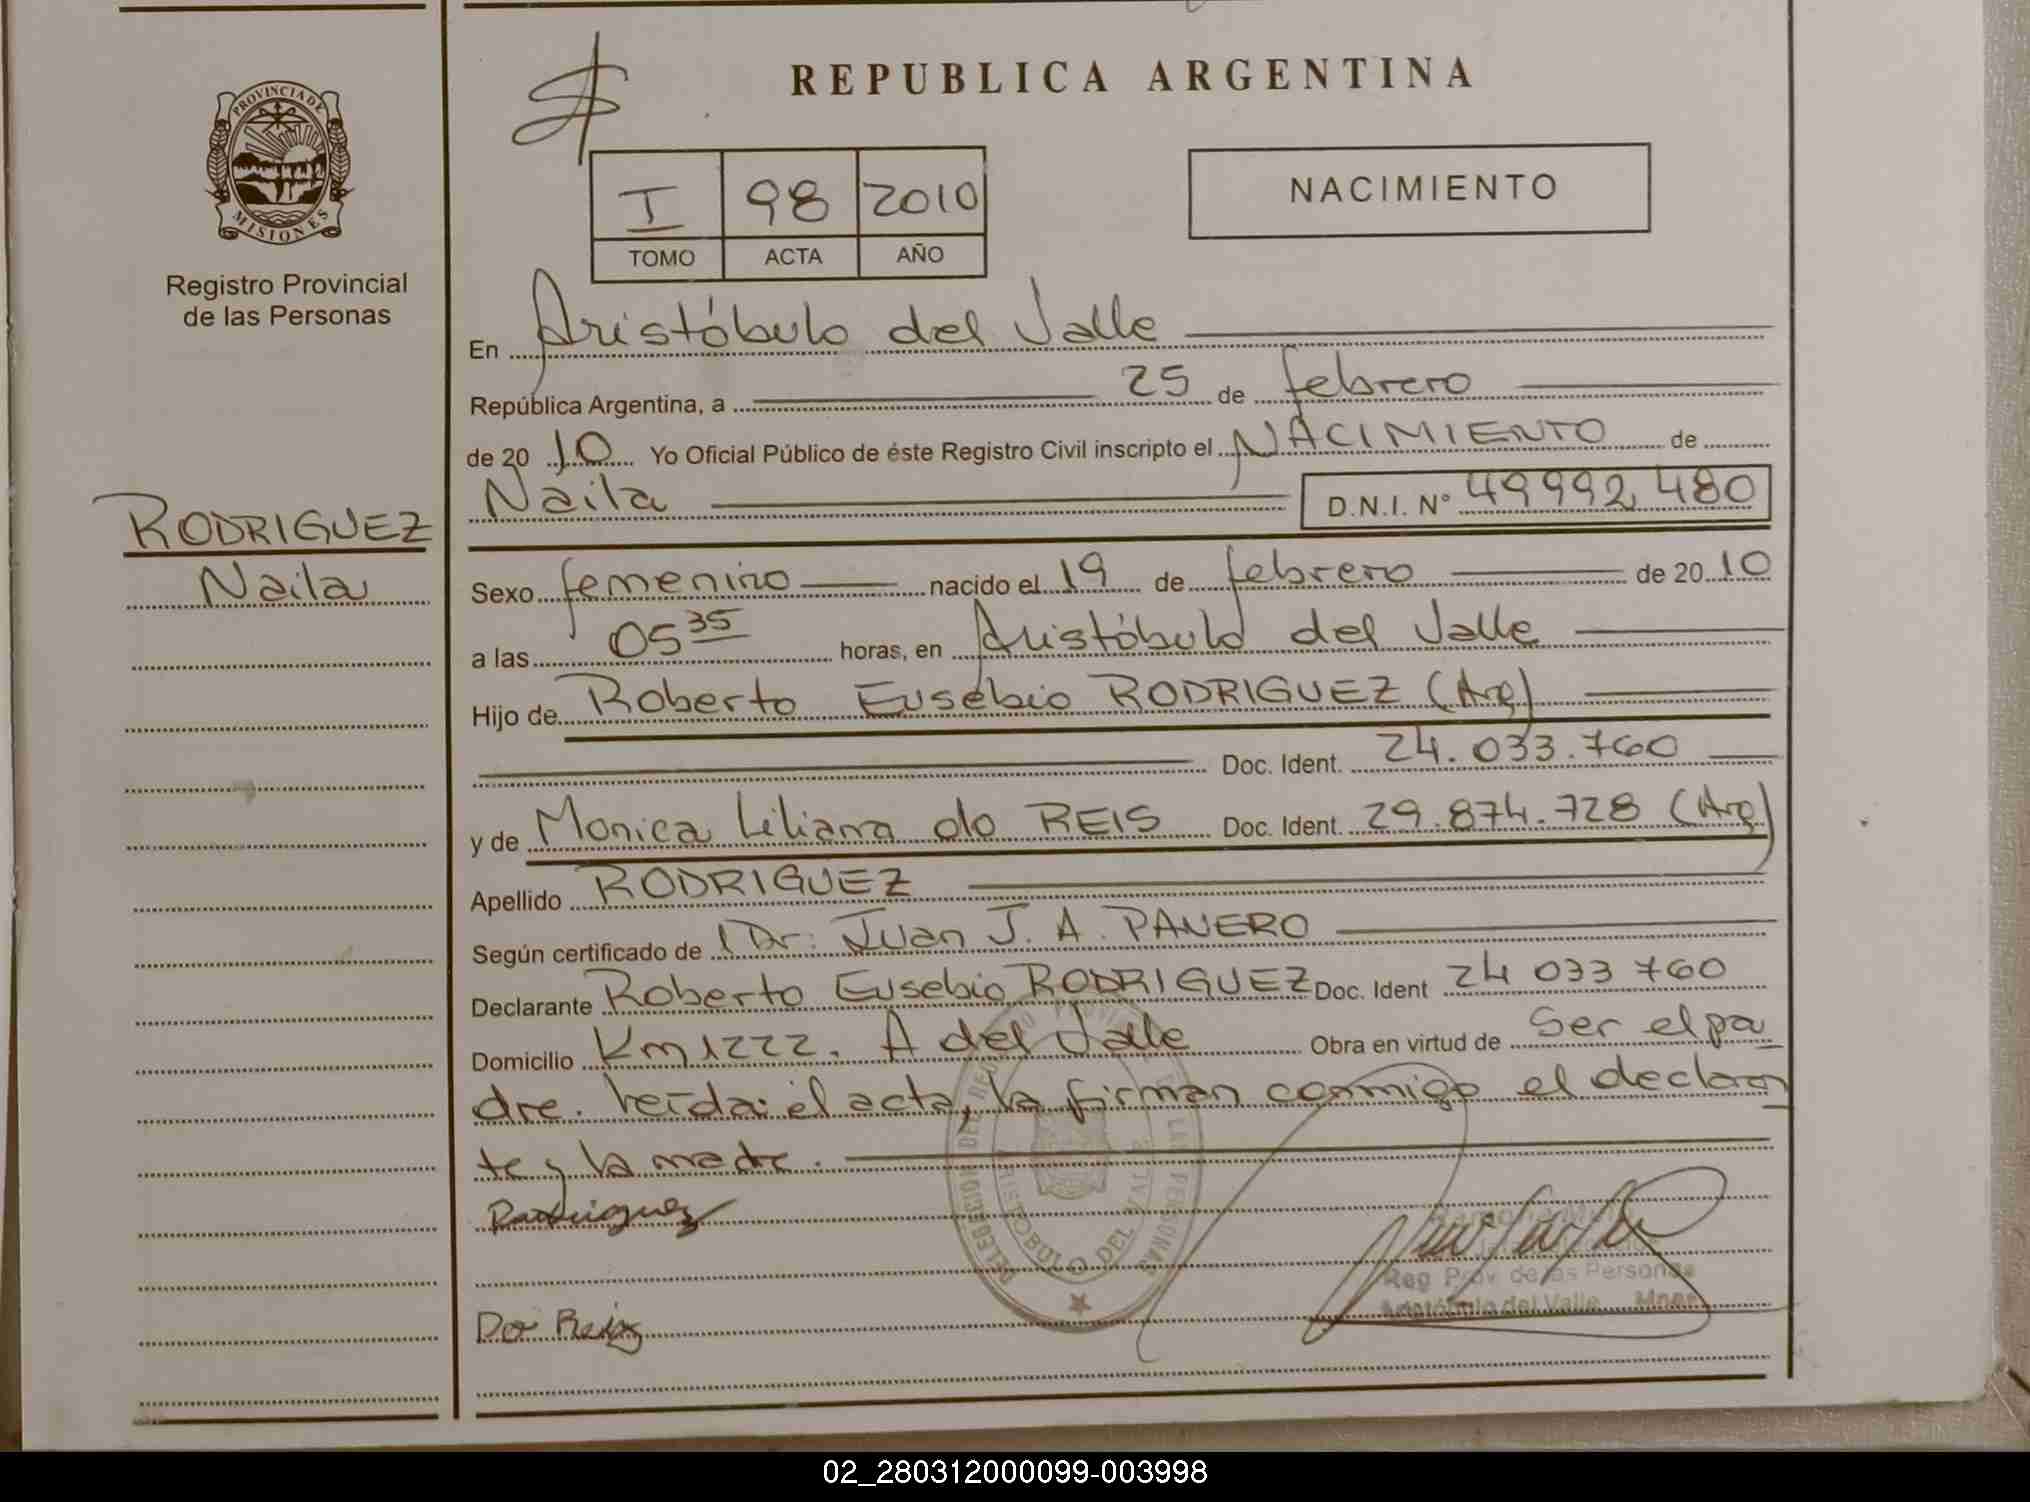 REPUBLICA ARGENTINA
PROVINCIA DE
MISIONES
Registro Provincial
de las Personas
I 98 2010
TOMO ACTA AÑO
NACIMIENTO
En Aristóbulo del Valle
República Argentina, a 25 de febrero
de 2010 Yo Oficial Público de éste Registro Civil inscripto el NACIMIENTO de
Naila D.N.I. Nº 49992480
RODRIGUEZ
Naila
Sexo femenino nacido el 19 de febrero de 2010
a las 05 35 horas, en Aristóbulo del Valle
Hijo de Roberto Eusebio RODRIGUEZ (Arg)
Doc. Ident. 24.033.760
y de Monica Liliana do REIS Doc. Ident. 29.874.728 (Arg)
Apellido RODRIGUEZ
Según certificado de Dr: Juan J. A. PANERO
Declarante Roberto Eusebio RODRIGUEZ Doc. Ident 24 033 760
Domicilio Km 1222. A del Valle Obra en virtud de Ser el pa
dre. Leída el acta, la firman conmigo el declaran
te y la madre.
Rodriguez
DELEGACION DEL REGISTRO PROVINCIAL DE LAS PERSONAS
ARISTOBULO DEL VALLE
Reg Prov. de las Personas
Aristóbulo del Valle Mnes
Do Reis
02_280312000099-003998